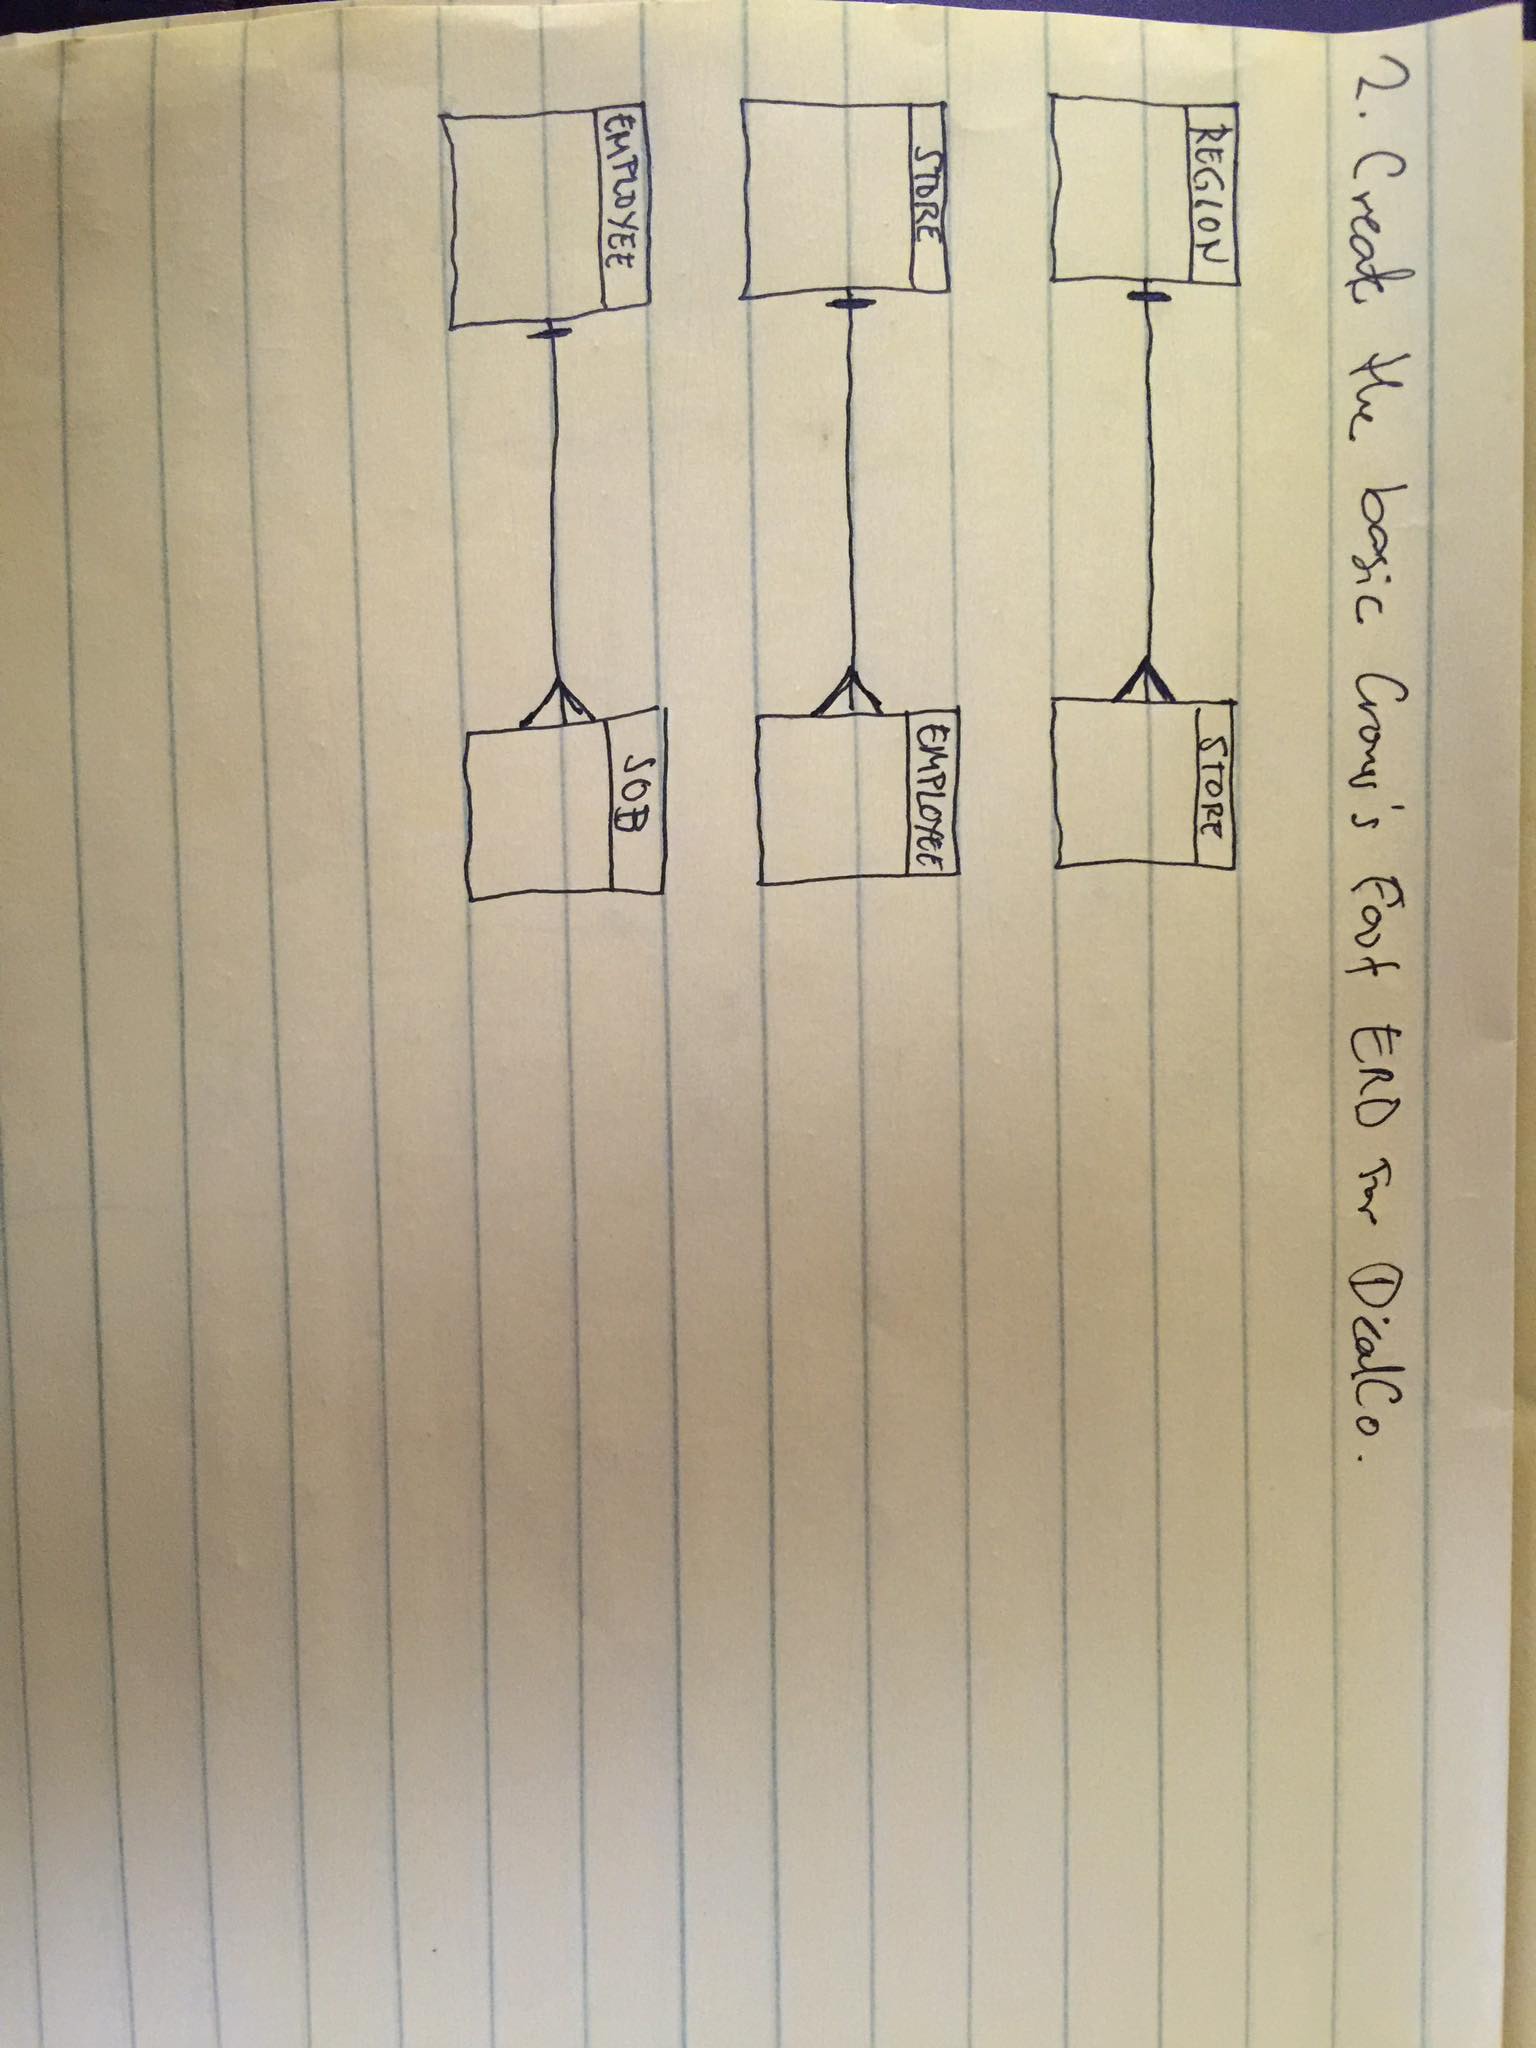 2. Create the basic Crow's Foot ERD for DicalCo.
REGION
STORE
STORE
EMPLOYEE
EMPLOYEE
JOB